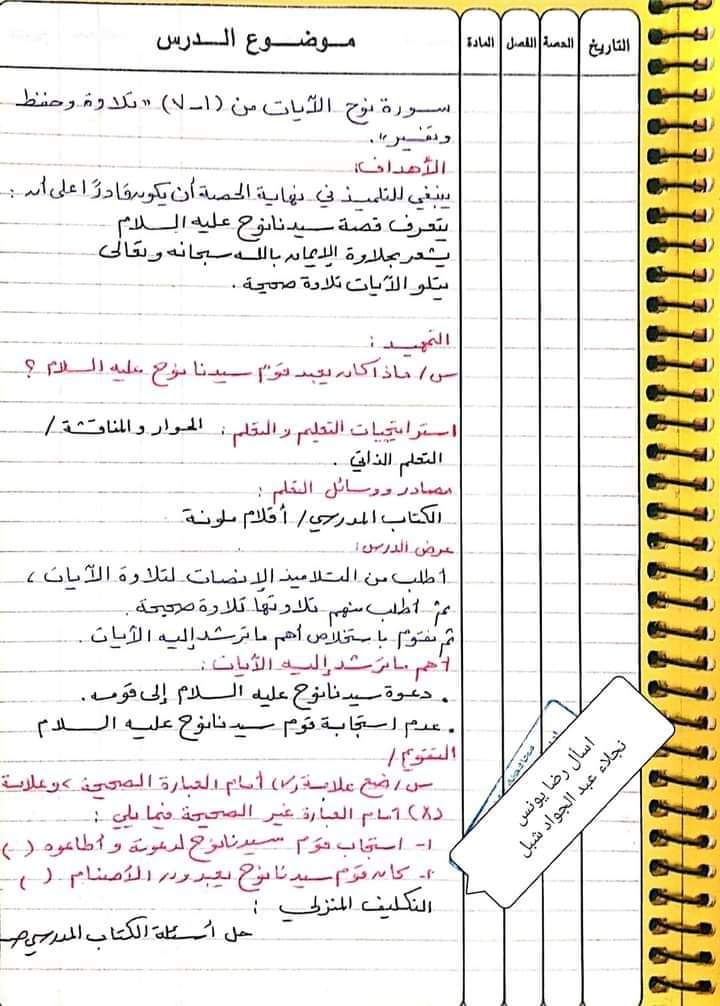 التاريخ الحصة الفصل المادة موضوع الدرس
سورة نوح الآيات من (١-٧) "تلاوة وحفظ
وتفسير".
الأهداف:
ينبغي للتلميذ في نهاية الحصة أن يكون قادرًا على أن :
يتعرف قصة سيدنا نوح عليه السلام
يشعر بحلاوة الإيمان بالله سبحانه وتعالى
يتلو الآيات تلاوة صحيحة .
التمهيد :
س/ ماذا كان يعبد قوم سيدنا نوح عليه السلام ؟
استراتيجيات التعليم والتعلم : الحوار والمناقشة /
التعلم الذاتي .
مصادر ووسائل التعلم :
الكتاب المدرسي/ أقلام ملونة
عرض الدرس:
أطلب من التلاميذ الإنصات لتلاوة الآيات ،
ثم أطلب منهم تلاوتها تلاوة صحيحة .
ثم نقوم باستخلاص أهم ما ترشد إليه الآيات .
أهم ما ترشد إليه الآيات :
. دعوة سيدنا نوح عليه السلام إلى قومه .
. عدم استجابة قوم سيدنا نوح عليه السلام
التقويم /
س/ ضع علامة (✓) أمام العبارة الصحيحة ، وعلامة
(X) أمام العبارة غير الصحيحة فيما يلي :
١- استجاب قوم سيدنا نوح لدعوته وأطاعوه ( )
٢- كان قوم سيدنا نوح يعبدون الأصنام ( )
التكليف المنزلي :
حل أسئلة الكتاب المدرسي صـ
اسأل رضا يونس
نجلاء عبد الجواد شبل